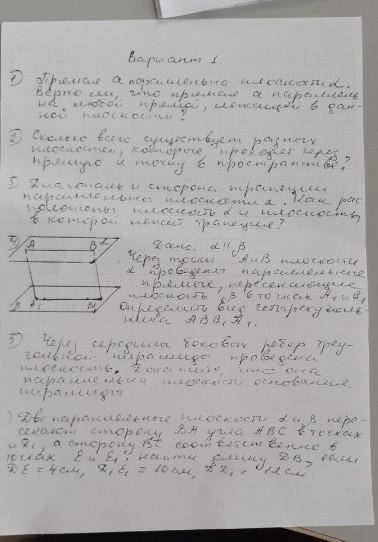 Вариант 1.
1) Прямая а параллельна плоскости α.
Верно ли, что прямая а параллель
на любой прямой, лежащей в дан-
ной плоскости?
2) Сколько всего существует разных
плоскостей, которые проходят через
прямую и точку в пространстве?
3) Диагональ и сторона трапеции
параллельны плоскости α. Как рас
положены плоскость α и плоскость,
в которой лежит трапеция?
4) A B α
β A1 B1
Дано: α || β
Через точки А и В плоскости
α проведены параллельные
прямые, пересекающие
плоскость β в точках А1 и В1
Определить вид четырехуголь-
ника АВВ1А1.
5) Через середины боковых ребер треу-
гольной пирамиды проведена
плоскость. Докажите, что она
параллельна плоскости основания
пирамиды.
) Две параллельные плоскости α и β пере-
секают сторону ВА угла АВС в точках
и D1, а сторону ВС соответственно в
точках Е и Е1. Найти длину DB, если
DE = 4см, D1E1 = 10см, DD1 = 12см.